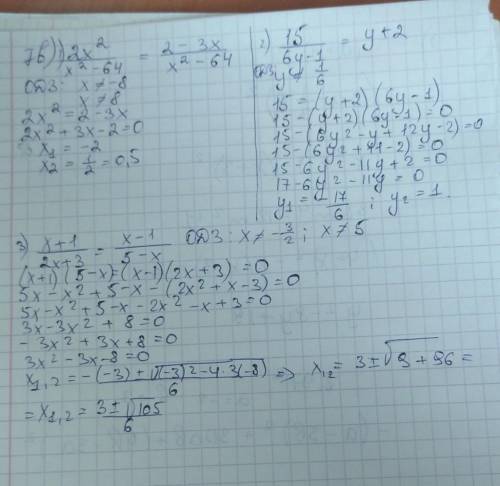 7б) 1) 2x² / x²-64 = 2-3x / x²-64
ОДЗ: x ≠ -8
x ≠ 8
2x² = 2-3x
2x²+3x-2=0
x₁ = -2
x₂ = 1/2 = 0,5
2) 15 / 6y-1 = y+2
ОДЗ: y ≠ 1/6
15 = (y+2)(6y-1)
15-(y+2)(6y-1)=0
15-(6y²-y+12y-2)=0
15-(6y²+11-2)=0
15-6y²-11y+2=0
17-6y²-11y=0
y₁ = -17/6 ; y₂ = 1.
3) x+1 / 2x+3 = x-1 / 5-x ОДЗ: x ≠ -3/2 ; x ≠ 5
(x+1)(5-x)-(x-1)(2x+3)=0
5x-x²+5-x-(2x²+x-3)=0
5x-x²+5-x-2x²-x+3=0
3x-3x²+8=0
-3x²+3x+8=0
3x²-3x-8=0
x₁,₂ = -(-3)±√(-3)²-4·3(-8) / 6 => x₁₂ = 3±√9+96 =
= x₁,₂ = 3±√105 / 6